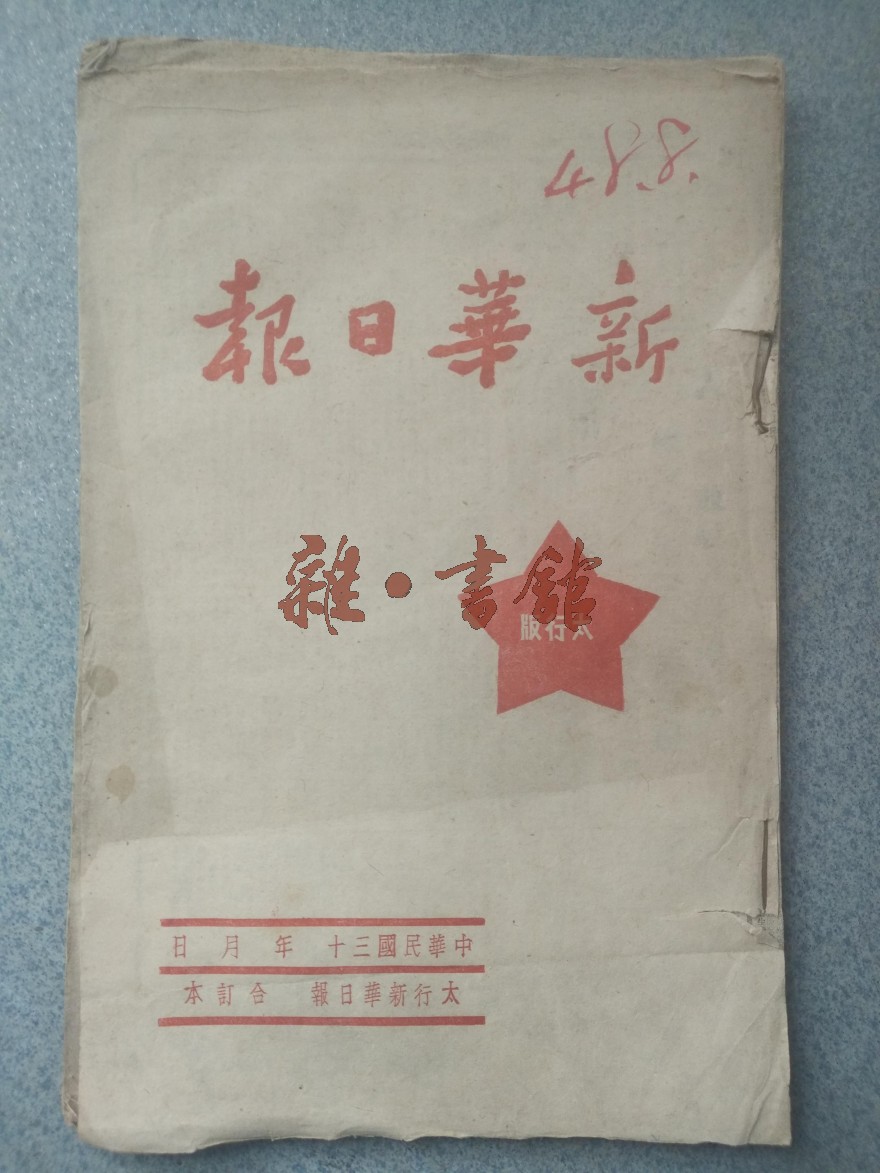 新華日報
雜·書館
太行版
中華民國三十 年 月 日
太行新華日報 合訂本